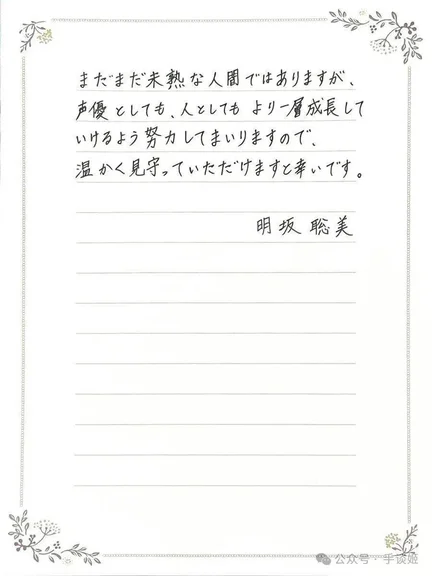 まだまだ未熟な人間ではありますが、
声優としても、人としても より一層成長して
いけるよう努力してまいりますので、
温かく見守っていただけますと幸いです。
明坂 聡美
公众号・手谈姬